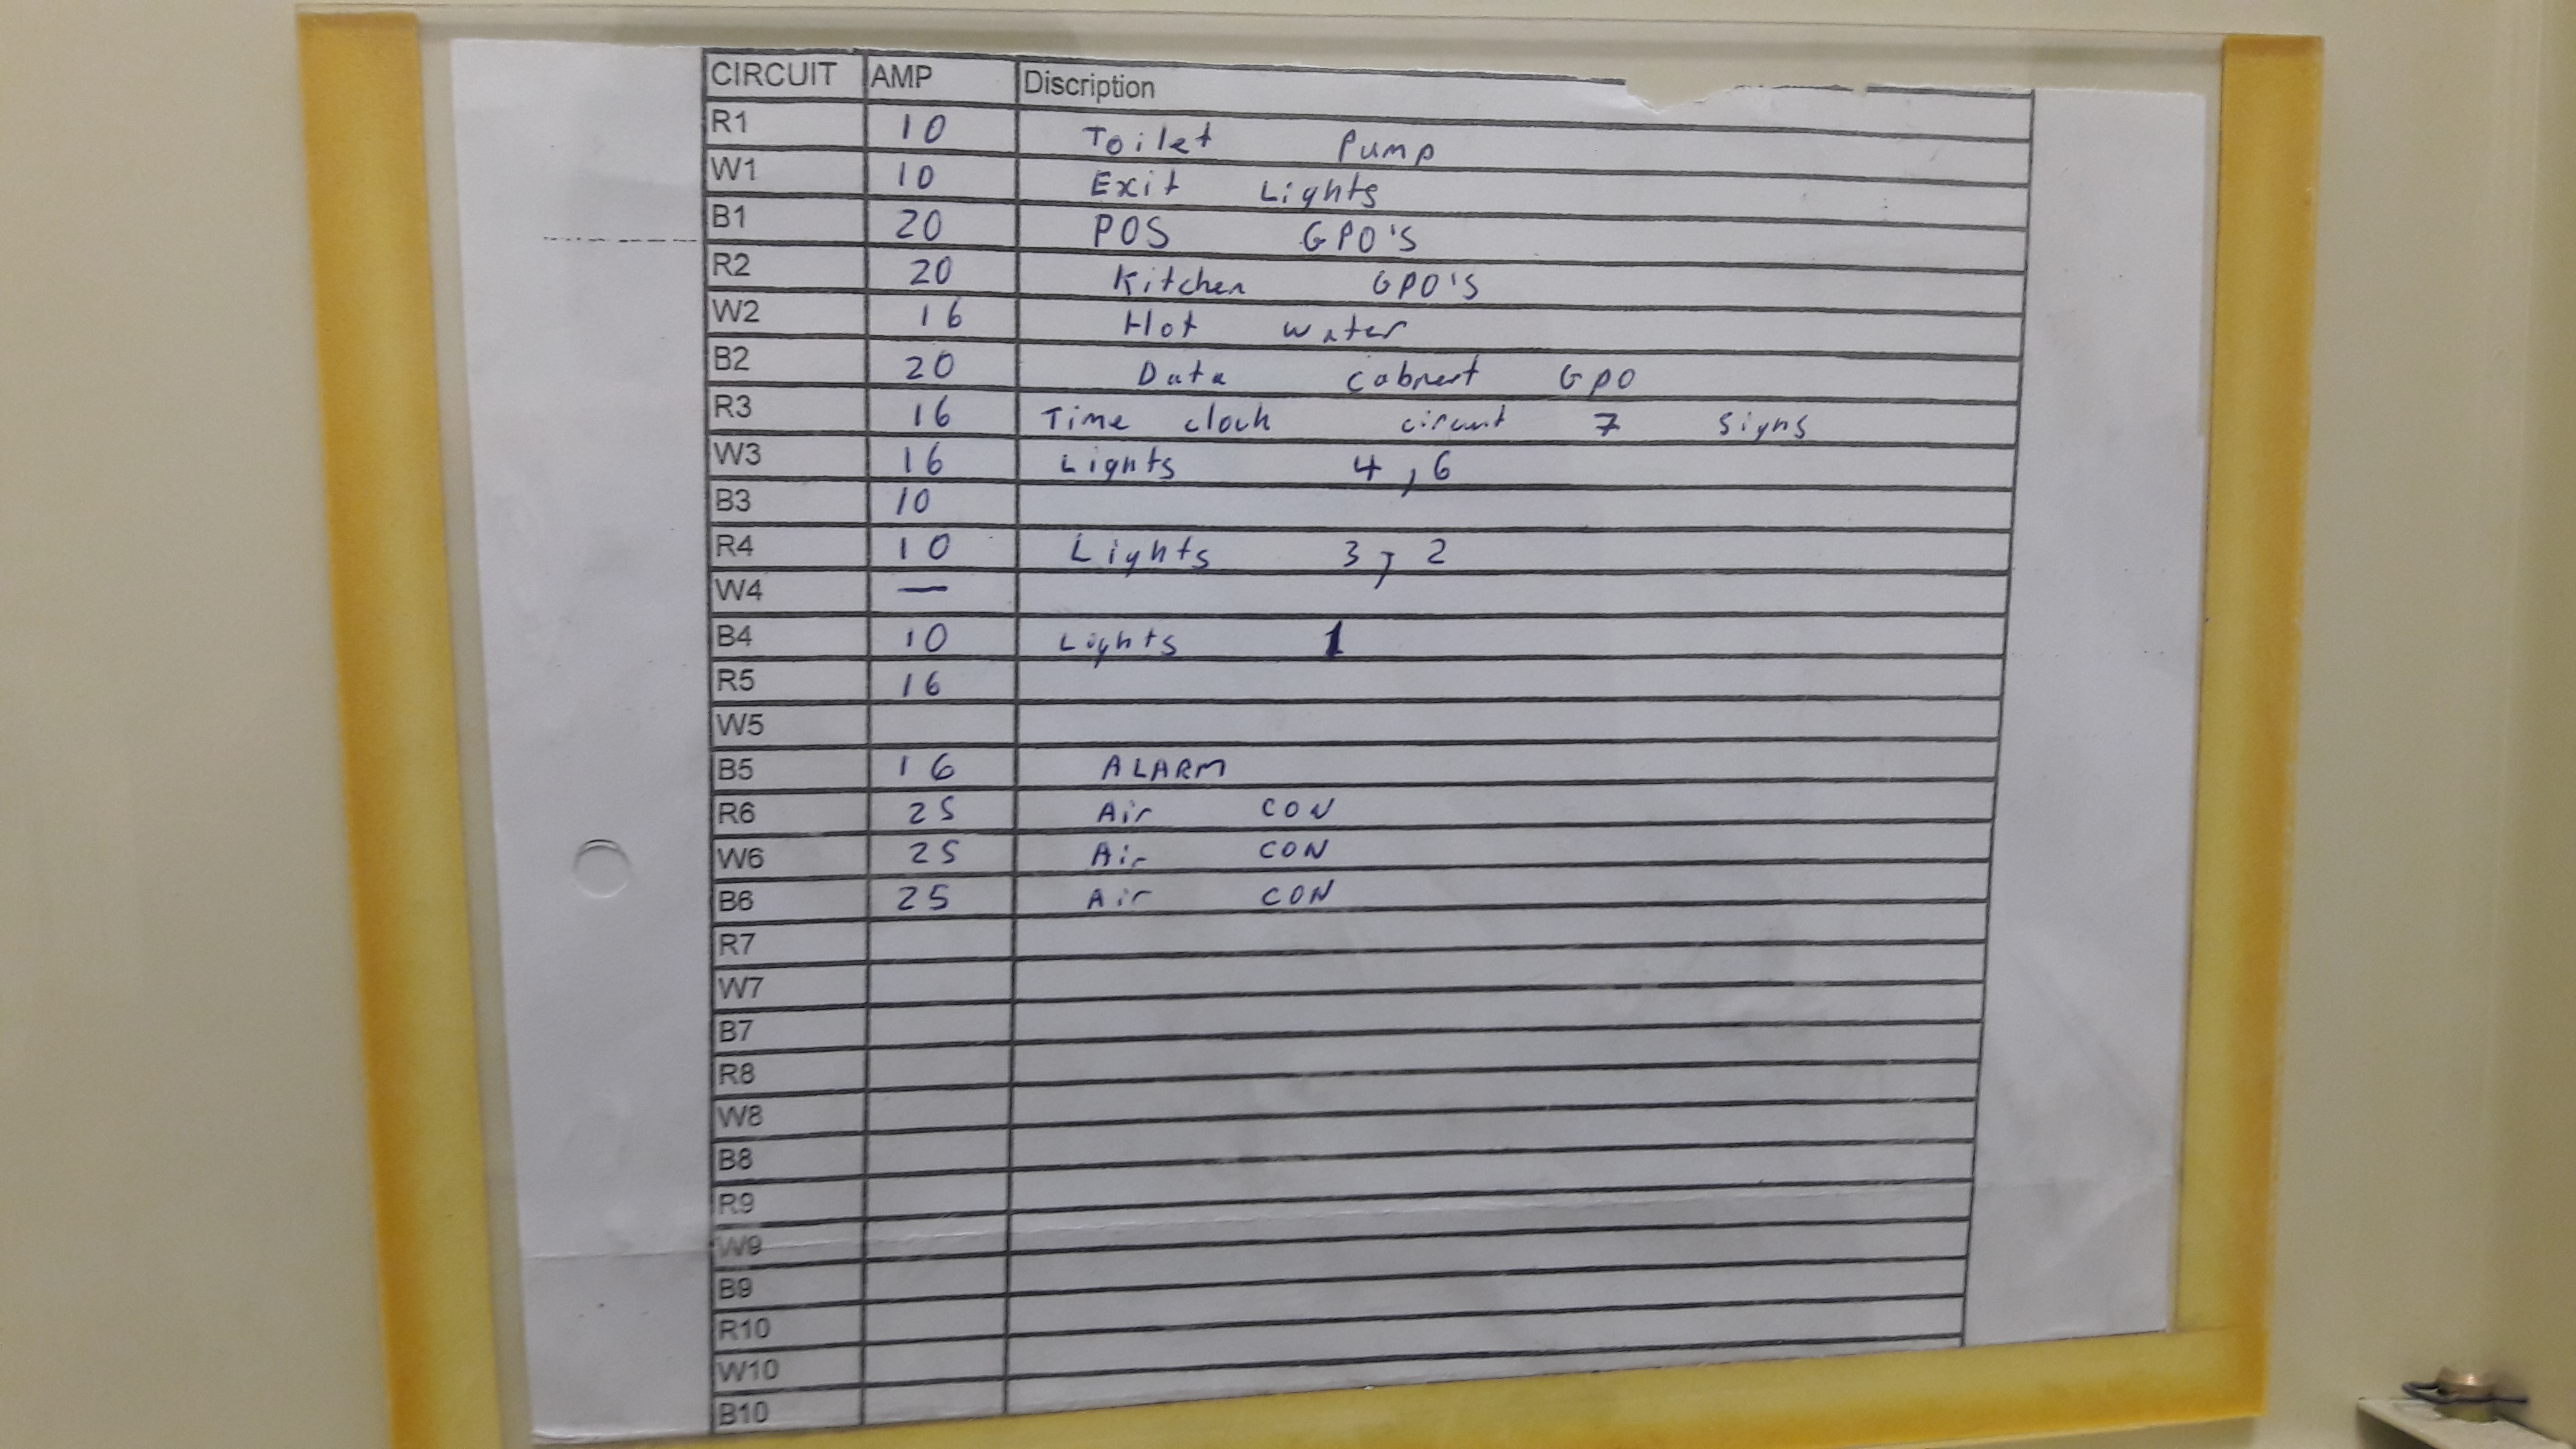 CIRCUIT AMP Discription
R1 10 Toilet Pump
W1 10 Exit Lights
B1 20 POS GPO'S
R2 20 Kitchen GPO'S
W2 16 Hot water
B2 20 Data cabnert GPO
R3 16 Time clock circuit 7 signs
W3 16 Lights 4,6
B3 10
R4 10 Lights 3, 2
W4 —
B4 10 Lights 1
R5 16
W5
B5 16 ALARM
R6 25 Air CON
W6 25 Air CON
B6 25 Air CON
R7
W7
B7
R8
W8
B8
R9
W9
B9
R10
W10
B10